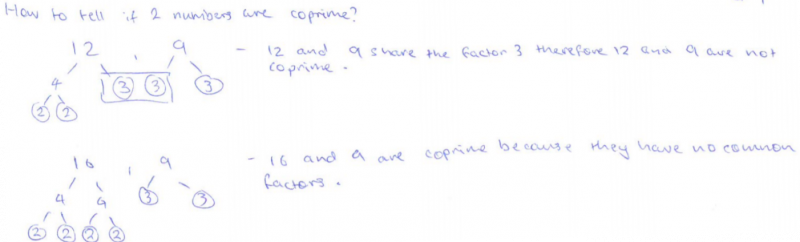 How to tell if 2 numbers are coprime?
12 , 9 - 12 and 9 share the factor 3 therefore 12 and 9 are not
coprime.
4 3 3 3
2 2
16 , 9 - 16 and 9 are coprime because they have no common
factors.
4 4 3 3
2 2 2 2